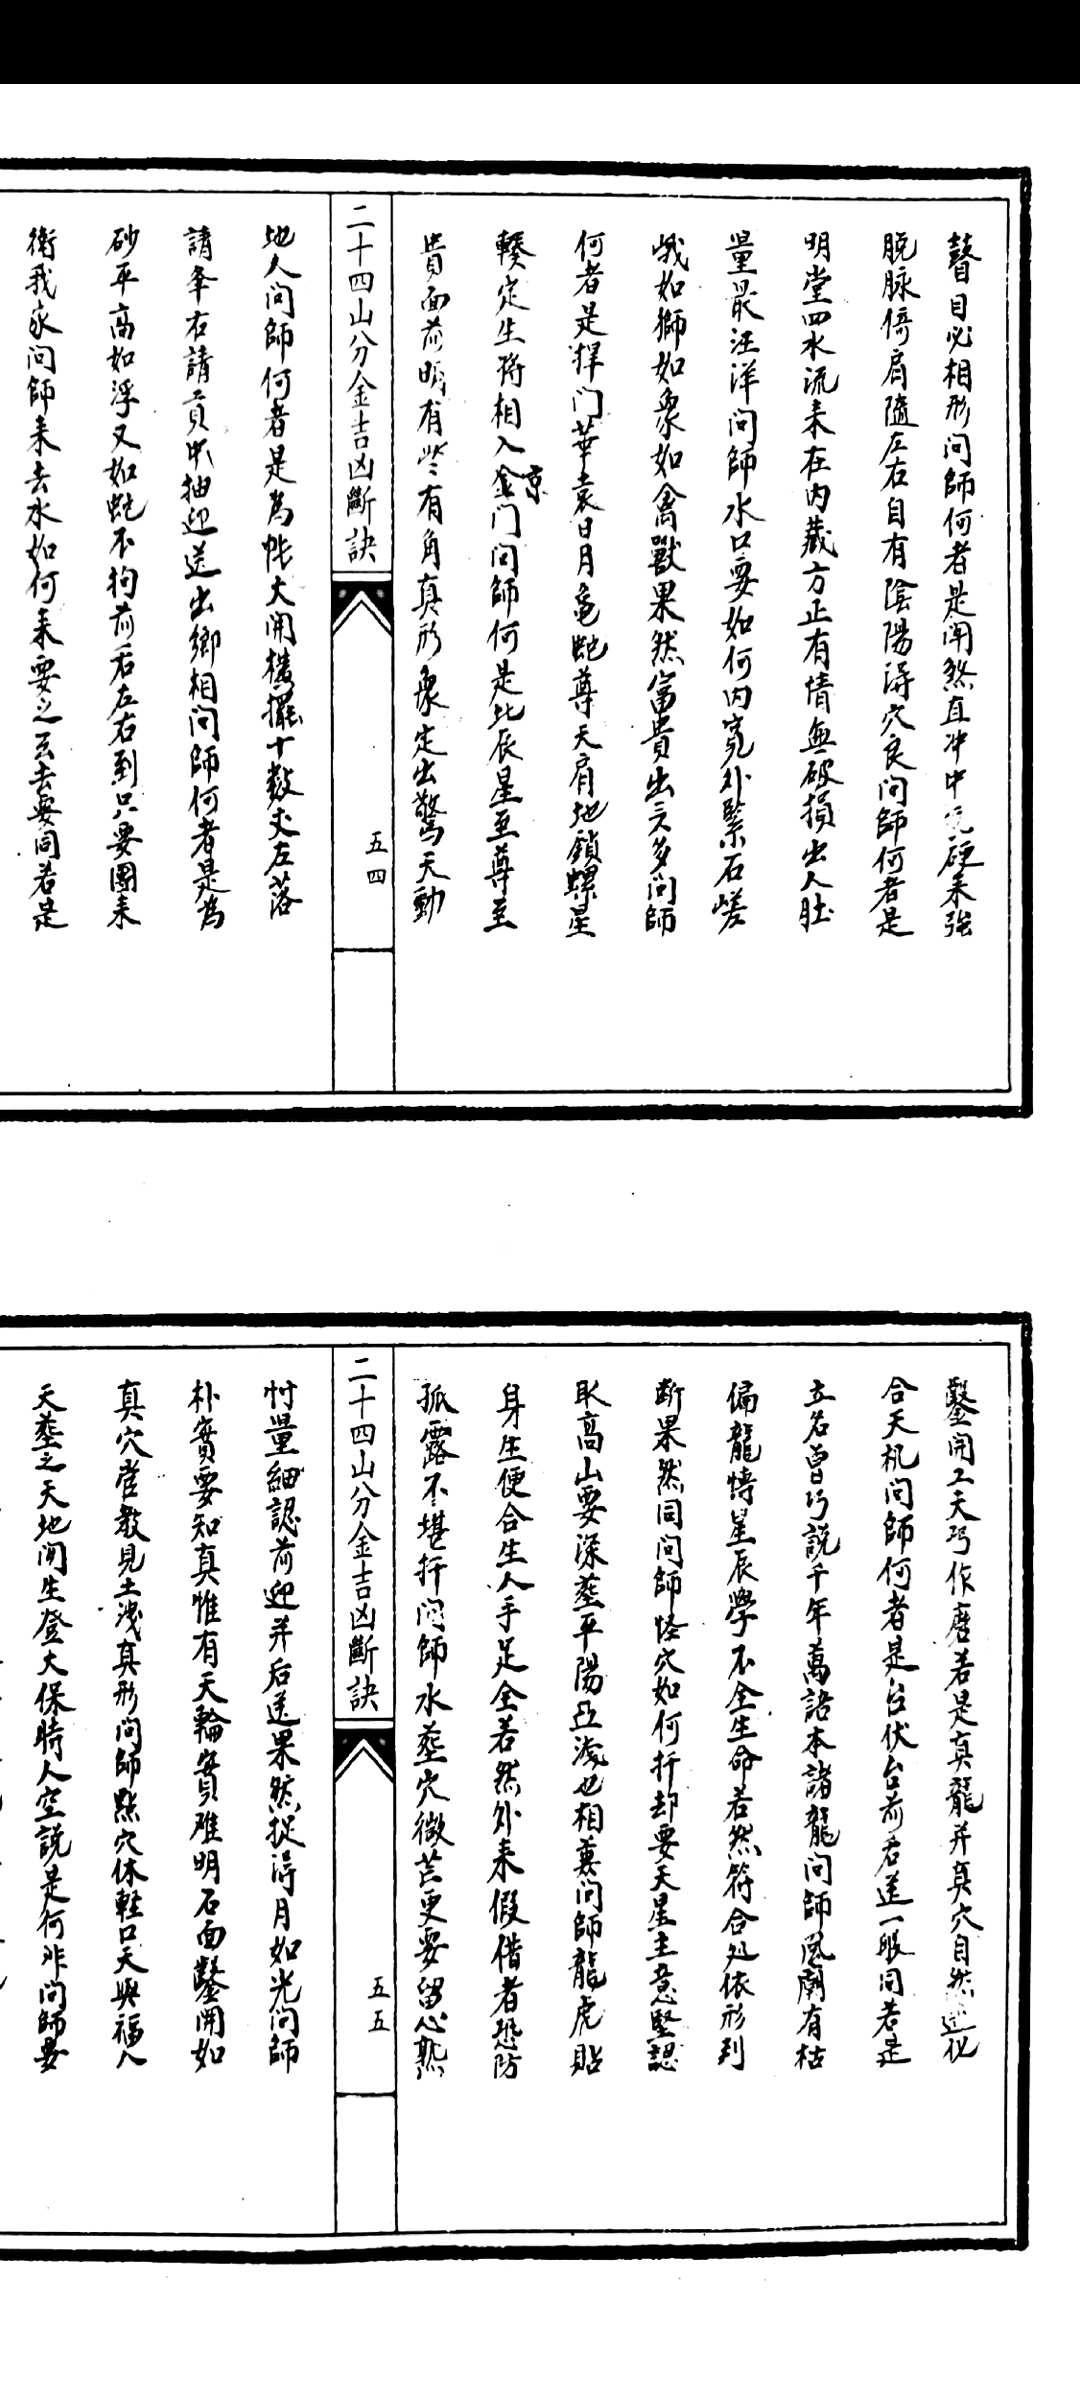 瞽目必相形问師何者是開煞直冲中硬来強
脱脉倚肩隨左右自有陰陽淂穴良问師何者是
明堂四水流来在内藏方正有情無破損出人肚
量最汪洋问師水口要如何内寬外緊石嵯
峨如獅如象如禽獸果然富貴出官多问師
何者是捍门華表日月龟蛇尊天肩地鎖螺星
轅定生将相入金门问師何是北辰星至尊至
京
貴面前晴有些有角真形象定出驚天動
二十四山分金吉凶斷訣
五四
地人问師何者是為帐大開橫擺十數丈左落
請奉右請貢中抽迎送出鄉相问師何者是為
砂平高如浮又如蛇不拘前后左右到只要團来
衛我家问師来去水如何来要之玄去要同若是
鑿開工天巧作磨若是真龍并真穴自然造化
合天机问師何者是台伏台前若送一眼同若是
立名曾巧說千年萬語本諸龍问師風開有枯
偏龍情星辰學不全生命若然符合处依形到
斷果然同问師怪穴如何扦却要天星主意堅認
取高山要深塟平陽亞淺也相兼问師龍虎貼
身生便合生人手足全若然外来假借者恐防
孤露不堪扦问師水塟穴微茫更要留心熟
二十四山分金吉凶斷訣
五五
忖量細認前迎并后送果然捉淂月如光问師
朴實要知真惟有天輪實难明石面鑿開如
真穴管教見土淺真形问師點穴休輕口天與福人
天塟之天地间生登大保時人空説是何非问師要